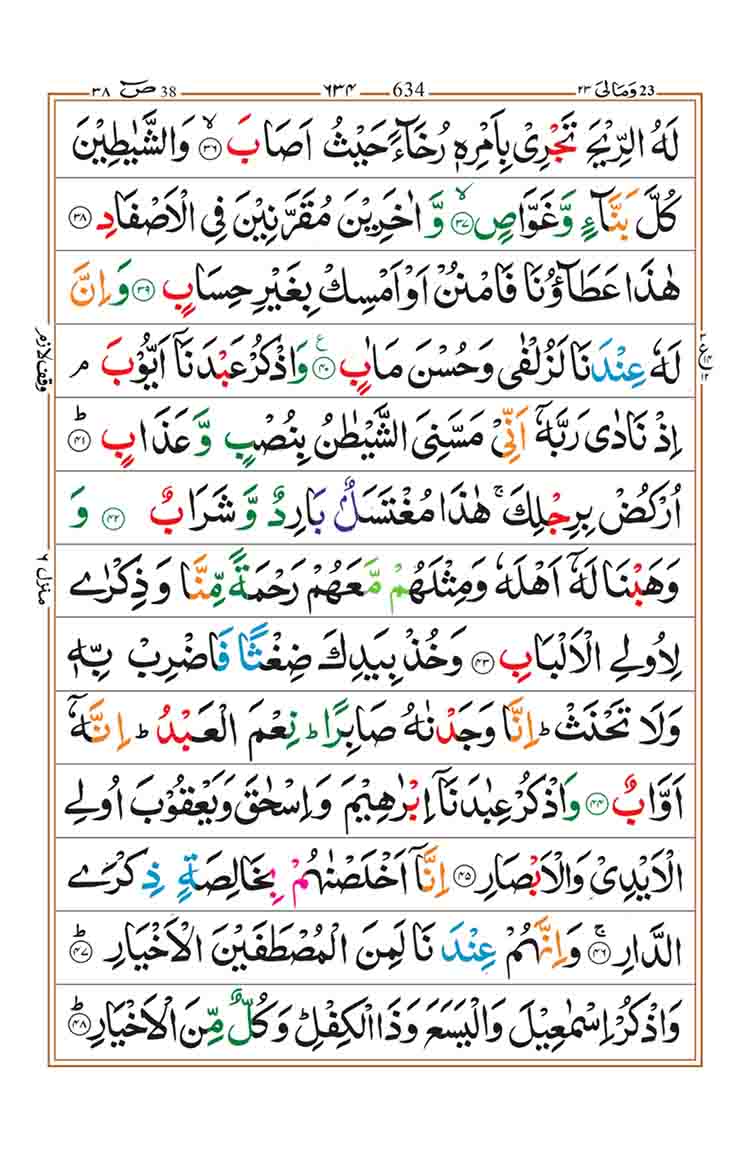 ٣٨ صٓ 38 ٦٣٤ 634 ٢٣ وَمَالِیَ 23
لَهُ الرِّیْحَ تَجْرِیْ بِاَمْرِهٖ رُخَآءً حَیْثُ اَصَابَ ۙ﴿۳۶﴾ وَالشَّیٰطِیْنَ
كُلَّ بَنَّآءٍ وَّغَوَّاصٍ ۙ﴿۳۷﴾ وَّ اٰخَرِیْنَ مُقَرَّنِیْنَ فِی الْاَصْفَادِ ﴿۳۸﴾
هٰذَا عَطَآؤُنَا فَامْنُنْ اَوْ اَمْسِكْ بِغَیْرِ حِسَابٍ ﴿۳۹﴾ وَاِنَّ
لَهٗ عِنْدَنَا لَزُلْفٰی وَحُسْنَ مَاٰبٍ ﴿۴۰﴾ ع وَاذْكُرْ عَبْدَنَاۤ اَیُّوْبَ ۘ
اِذْ نَادٰی رَبَّهٗۤ اَنِّیْ مَسَّنِیَ الشَّیْطٰنُ بِنُصْبٍ وَّ عَذَابٍ ؕ﴿۴۱﴾
اُرْكُضْ بِرِجْلِكَ ۚ هٰذَا مُغْتَسَلٌۢ بَارِدٌ وَّ شَرَابٌ ﴿۴۲﴾ وَ
وَهَبْنَا لَهٗۤ اَهْلَهٗ وَمِثْلَهُمْ مَّعَهُمْ رَحْمَةً مِّنَّا وَ ذِكْرٰی
لِاُولِی الْاَلْبَابِ ﴿۴۳﴾ وَخُذْ بِیَدِكَ ضِغْثًا فَاضْرِبْ بِّهٖ
وَلَا تَحْنَثْ ؕ اِنَّا وَجَدْنٰهُ صَابِرًا ؕ نِعْمَ الْعَبْدُ ؕ اِنَّهٗۤ
اَوَّابٌ ﴿۴۴﴾ وَاذْكُرْ عِبٰدَنَاۤ اِبْرٰهِیْمَ وَاِسْحٰقَ وَیَعْقُوْبَ اُولِی
الْاَیْدِیْ وَالْاَبْصَارِ ﴿۴۵﴾ اِنَّاۤ اَخْلَصْنٰهُمْ بِخَالِصَةٍ ذِكْرَی
الدَّارِ ۚ﴿۴۶﴾ وَاِنَّهُمْ عِنْدَ نَا لَمِنَ الْمُصْطَفَیْنَ الْاَخْیَارِ ؕ﴿۴۷﴾
وَاذْكُرْ اِسْمٰعِیْلَ وَالْیَسَعَ وَذَا الْكِفْلِ ؕ وَكُلٌّ مِّنَ الْاَخْیَارِ ؕ﴿۴۸﴾
وقف لازم
منزل ٦